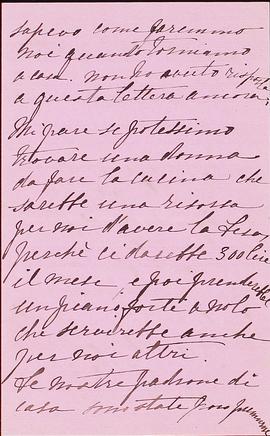 sapevo come faremmo
noi quando torniamo
a casa. non ho avuto risposta
a questa lettera ancora;
Mi pare se potessimo
trovare una donna
da fare la cucina che
sarebbe una risorsa
per noi d'avere la
perchè ci darebbe 300 lire
il mese, e poi prenderebbe
un piano forte a nolo
che servirebbe anche
per noi altri.
Le nostre padrone di
casa sono state